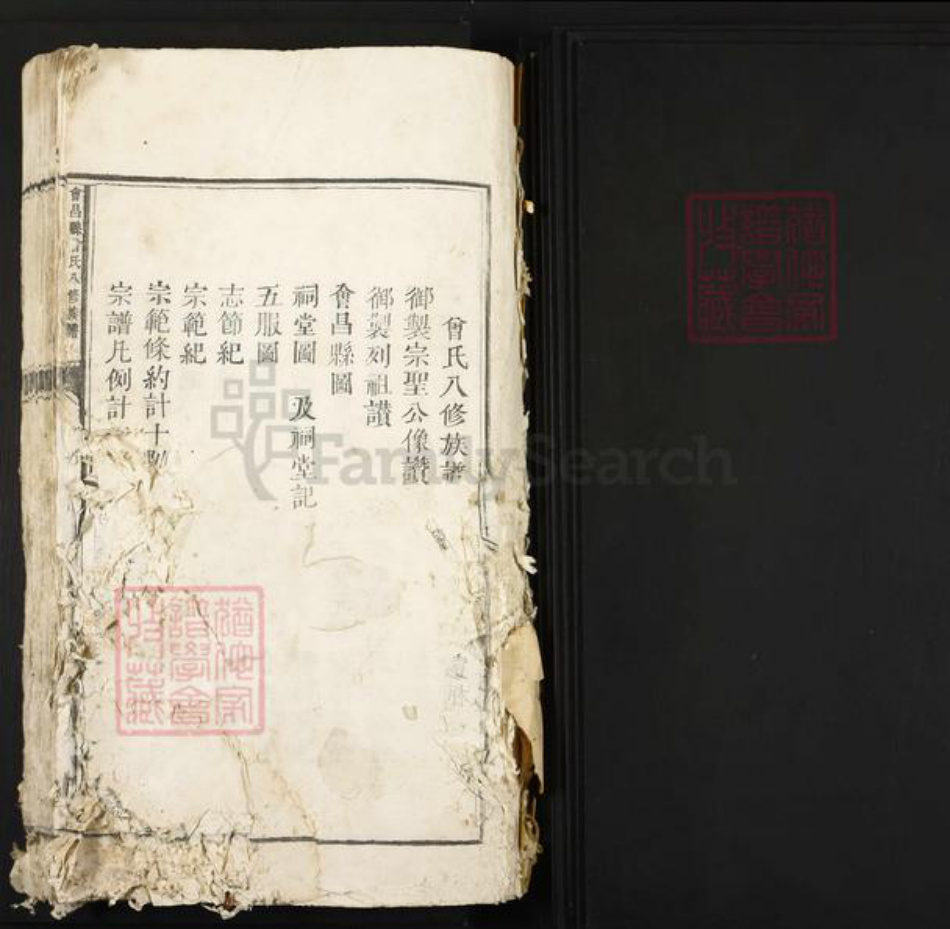 曾氏八修族譜
御製宗聖公像讚
御製列祖讚
會昌縣圖
祠堂圖 及祠堂記
五服圖
志節紀
宗範紀
宗範條約計十
宗譜凡例計
會昌縣曾氏八修族譜
FamilySearch
譜學會
特藏
譜學會
特藏